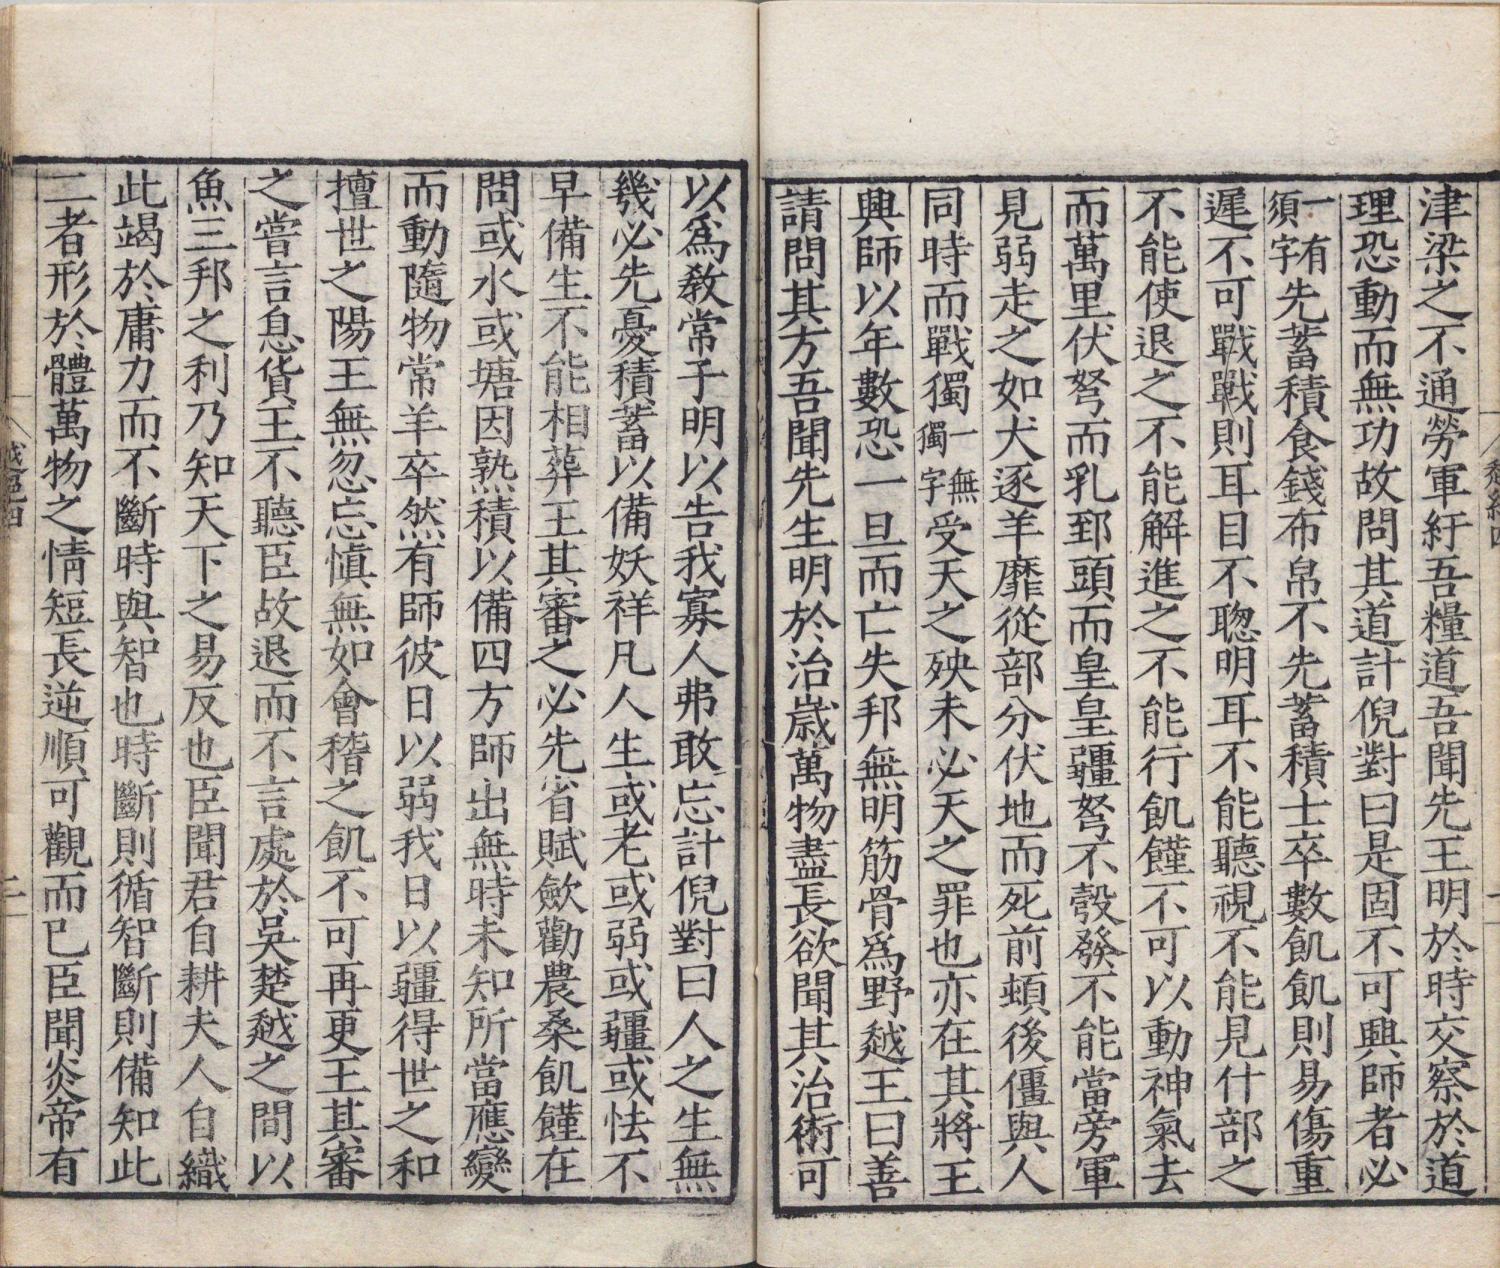 津梁之不通勞軍紆吾糧道吾聞先王明於時交察於道
理恐動而無功故問其道計倪對曰是固不可興師者必
一有須字先蓄積食錢布帛不先蓄積士卒數飢飢則易傷重
遲不可戰戰則耳目不聰明耳不能聽視不能見什部之
不能使退之不能解進之不能行飢饉不可以動神氣去
而萬里伏弩而乳郅頭而皇皇疆弩不彀發不能當旁軍
見弱走之如犬逐羊靡從部分伏地而死前頓後僵與人
同時而戰獨一無獨字受天之殃未必天之罪也亦在其將王
興師以年數恐一旦而亡失邦無明筋骨爲野越王曰善
請問其方吾聞先生明於治歲萬物盡長欲聞其治術可
以爲敎常子明以告我寡人弗敢忘計倪對曰人之生無
幾必先憂積蓄以備妖祥凡人生或老或弱或疆或怯不
早備生不能相葬王其審之必先省賦歛勸農桑飢饉在
問或水或塘因熟積以備四方師出無時未知所當應變
而動隨物常羊卒然有師彼日以弱我日以疆得世之和
擅世之陽王無忽忘愼無如會稽之飢不可再更王其審
之嘗言息貨王不聽臣故退而不言處於吳楚越之間以
魚三邦之利乃知天下之易反也臣聞君自耕夫人自織
此竭於庸力而不斷時與智也時斷則循智斷則備知此
二者形於體萬物之情短長逆順可觀而已臣聞炎帝有
越絕四
二